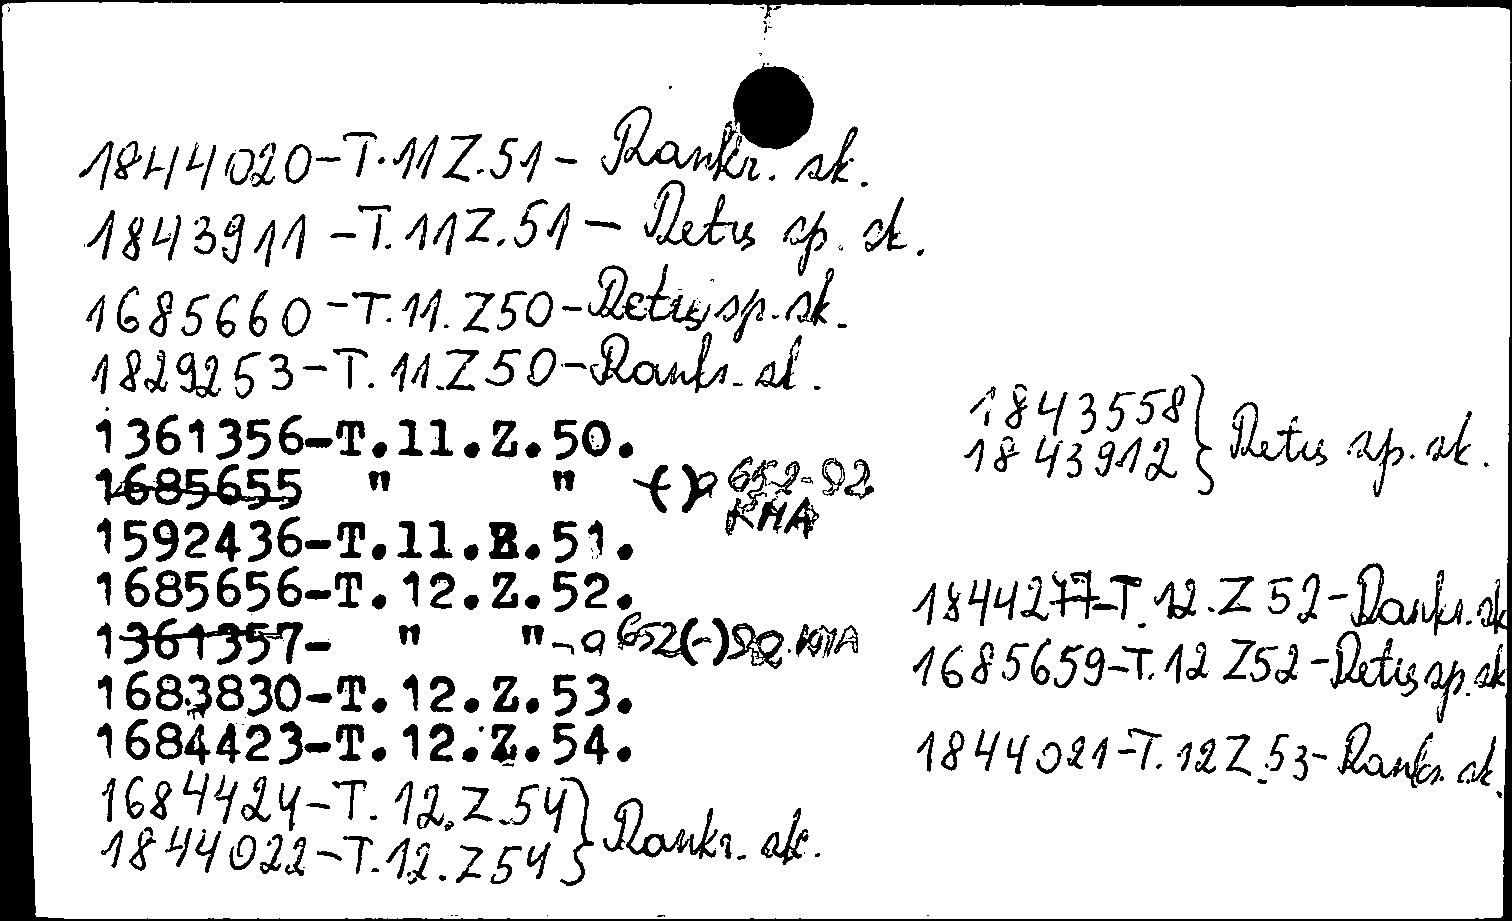 1844020-T.11Z.51- Rankr. sk.
1843911-T.11Z.51- Retus sp. sk.
1685660-T.11.Z50-Retus sp. sk.
1829253-T.11.Z50-Rankr. sk.
1361356-T.11.Z.50.
1685655 " " (-) a 652-92
KHA
1592436-T.11.Z.51.
1685656-T.12.Z.52.
1361357- " " - a 652(-)92. KHA
1683830-T.12.Z.53.
1684423-T.12.Z.54.
1684424-T.12.Z.54
1844022-T.12.Z54 } Rankr. sk.
1843558
1843912 } Retus sp. sk.
1844277-T.12.Z52-Rankr. sk
1685659-T.12 Z52-Retus sp. sk
1844021-T.12Z.53-Rankr. sk.